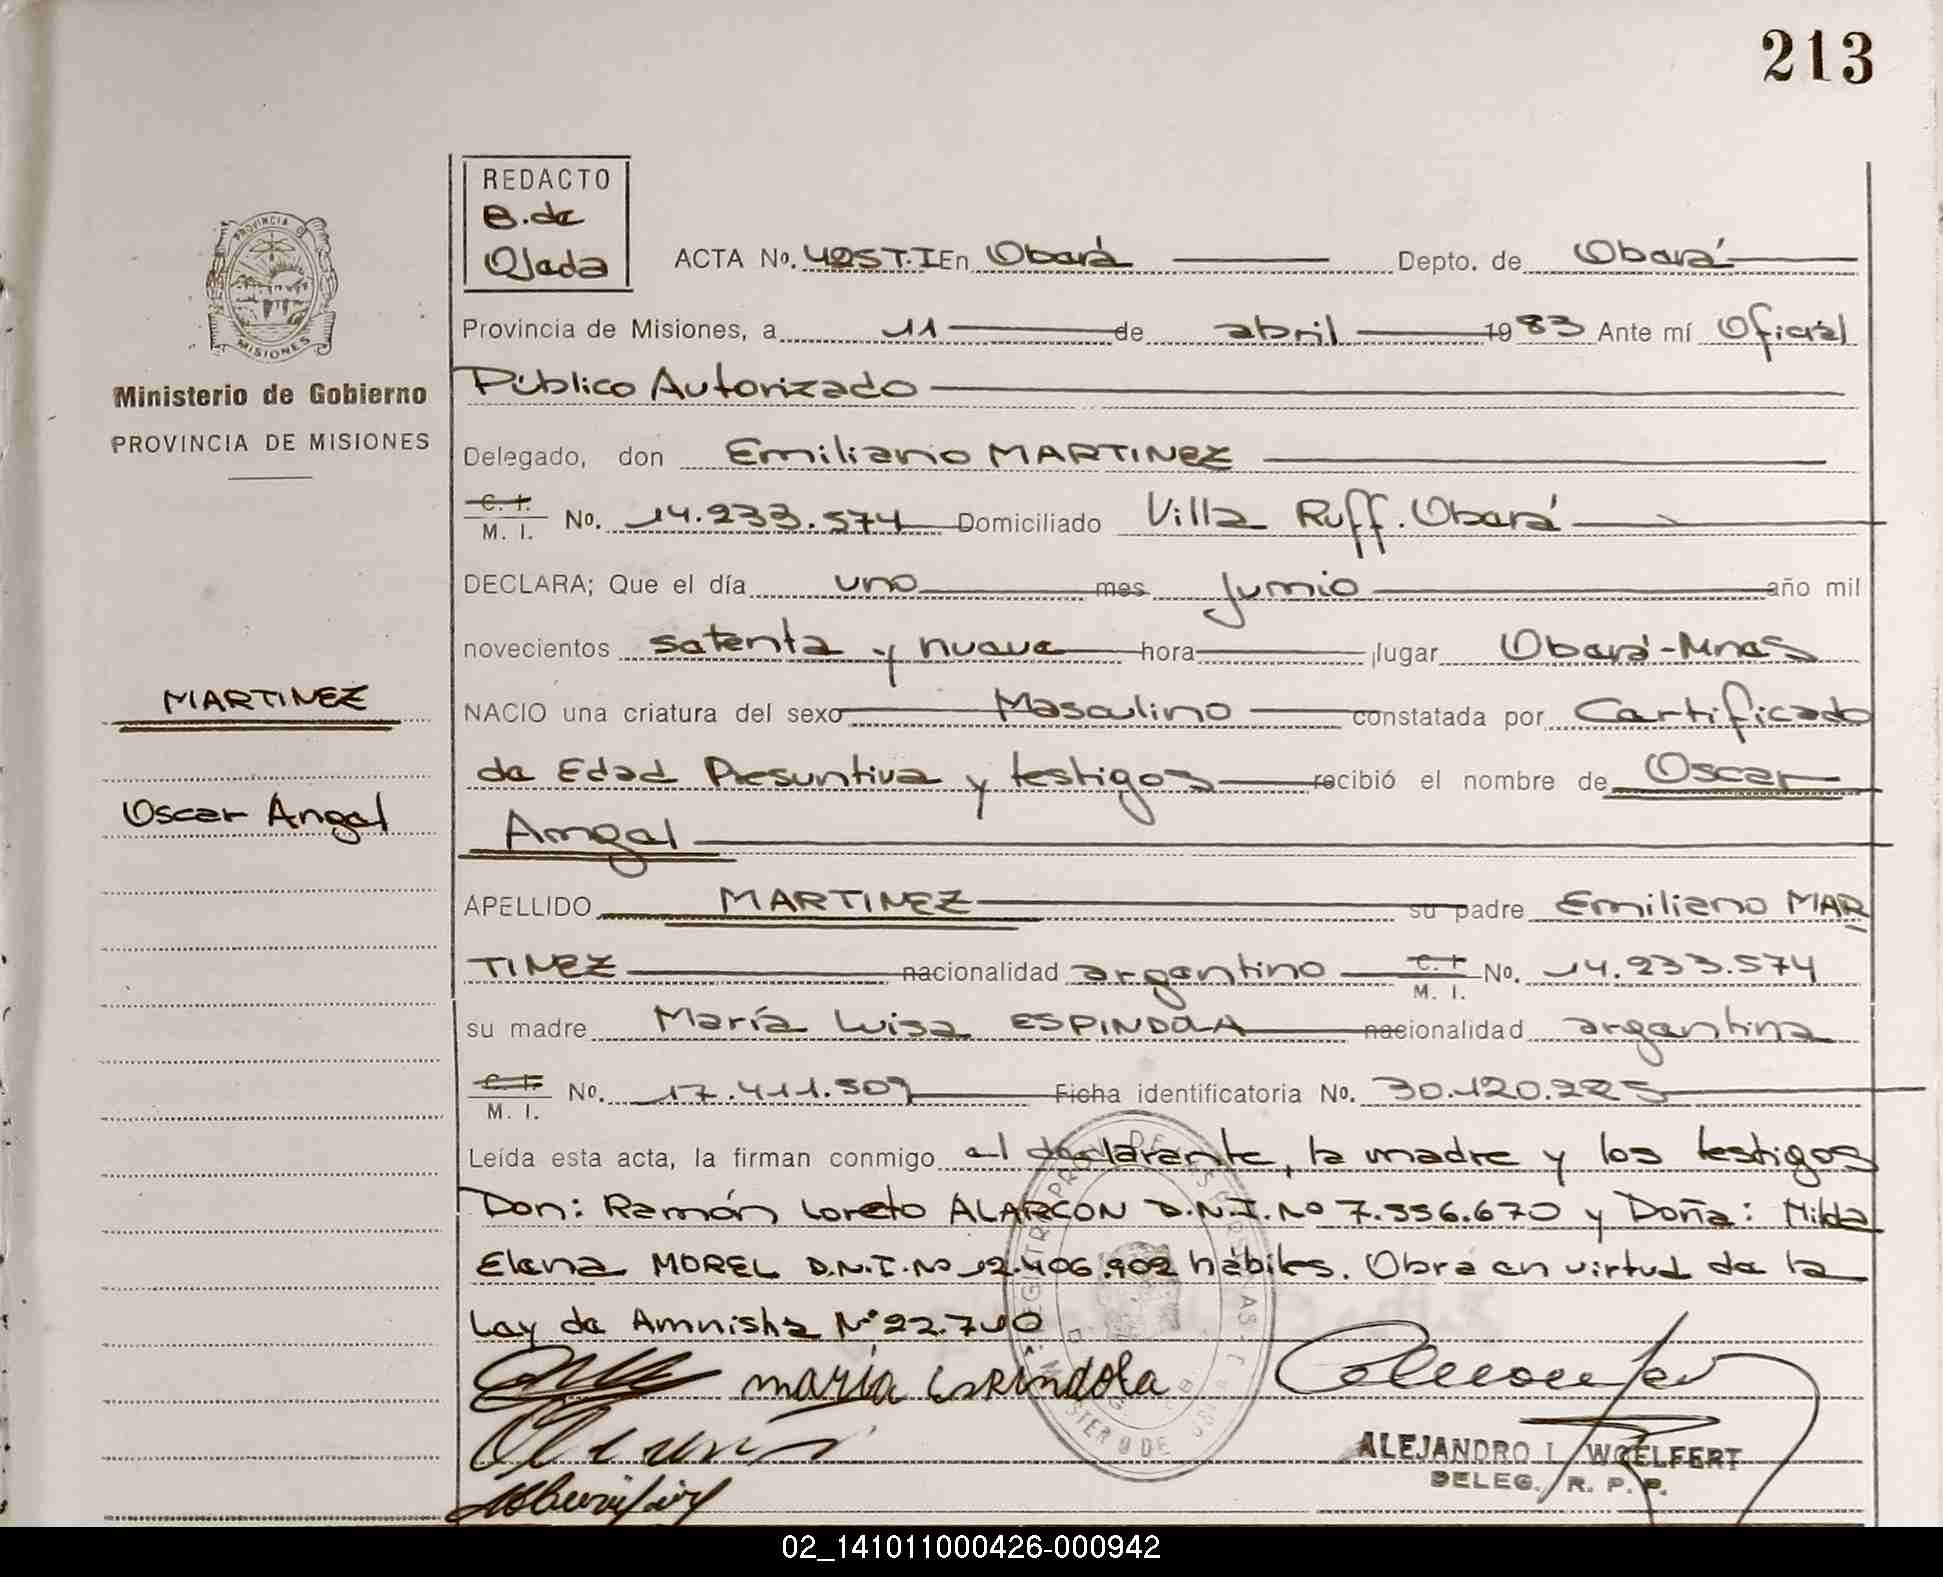 213
REDACTO
B. de
Ojeda
PROVINCIA D
MISIONES
Ministerio de Gobierno
PROVINCIA DE MISIONES
ACTA No. 425 T.I En Oberá Depto. de Oberá
Provincia de Misiones, a 11 de abril 1983 Ante mí Oficial
Público Autorizado
Delegado, don Emiliano MARTINEZ
C. I. M. I. No. 14.233.574 Domiciliado Villa Ruff. Oberá
DECLARA; Que el día uno mes Junio año mil
novecientos setenta y nueve hora lugar Oberá-Mnes
MARTINEZ
NACIO una criatura del sexo Masculino constatada por Certificado
de Edad Presuntiva y testigos recibió el nombre de Oscar
Oscar Angel
Angel
APELLIDO MARTINEZ su padre Emiliano MAR
TINEZ nacionalidad argentino C. I. M. I. No. 14.233.574
su madre María Luisa ESPINDOLA nacionalidad argentina
C. I. M. I. No. 17.411.509 Ficha identificatoria No. 30.120.225
Leída esta acta, la firman conmigo el declarante, la madre y los testigos
Don: Ramón Loreto ALARCON D.N.I. No 7.556.670 y Doña: Hilda
Elena MOREL D.N.I. No 12.406.902 hábiles. Obra en virtud de la
Ley de Amnistia Nº 22.710
maría Espíndola
ALEJANDRO L. WOELFERT
DELEG. R. P. P.
02_141011000426-000942